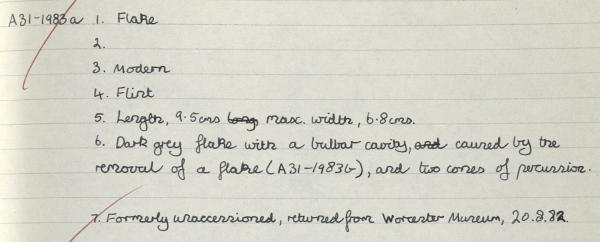 A31-1983a 1. Flake
2.
3. Modern
4. Flint
5. Length, 9.5cms long max. width, 6.8cms.
6. Dark grey flake with a bulbar cavity, and caused by the
removal of a flake (A31-1983b), and two cones of percussion.
7. Formerly unaccessioned, returned from Worcester Museum, 20.8.82.